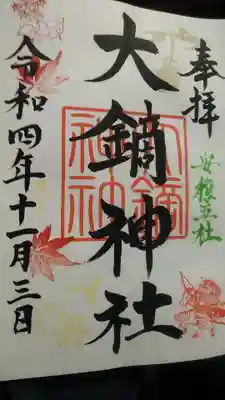 奉拝
安穏立社
大鏑神社
大鏑
神社
令和四年十一月三日